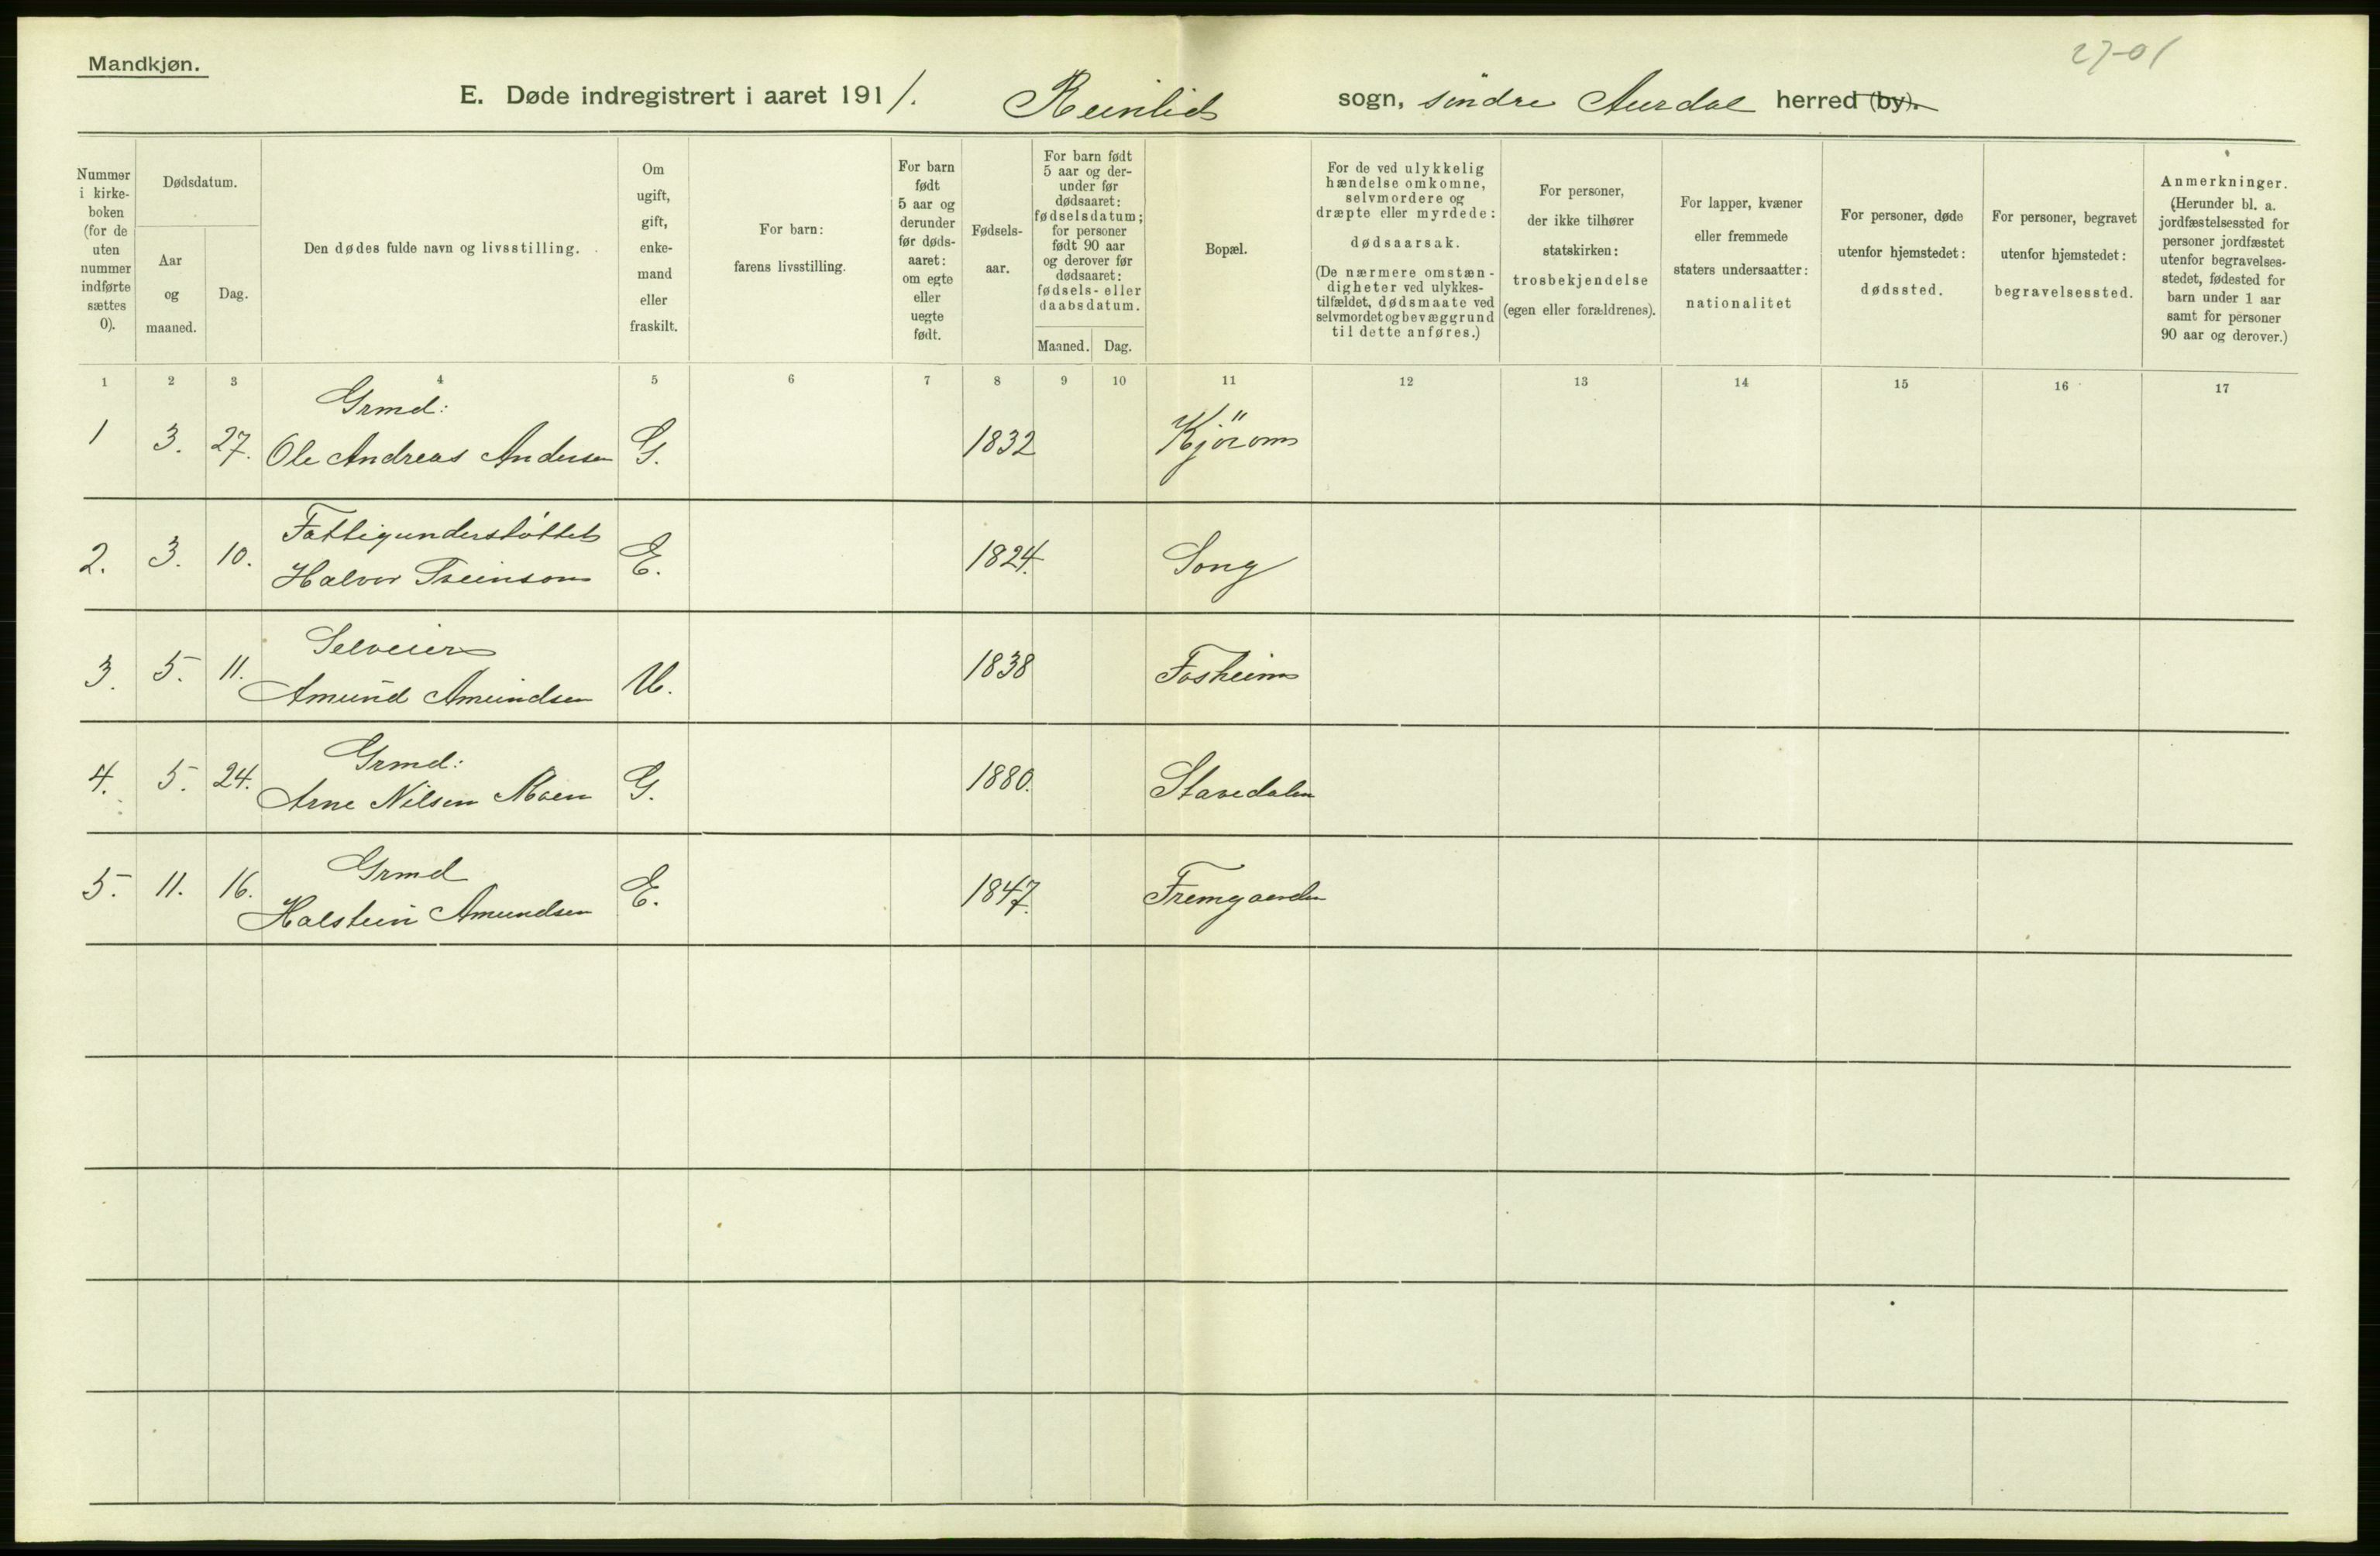 Mandkjøn.
27-01
E. Døde indregistrert i aaret 1911. Reinlids sogn, söndre Aurdal herred (by).
Nummer i kirkeboken (for de uten nummer indførte sættes 0).
Dødsdatum.
Aar og maaned.
Dag.
Den dødes fulde navn og livsstilling.
Om ugift, gift, enkemand eller fraskilt.
For barn: farens livsstilling.
For barn født 5 aar og derunder før dødsaaret: om egte eller uegte født.
Fødselsaar.
For barn født 5 aar og derunder før dødsaaret: fødselsdatum; for personer født 90 aar og derover før dødsaaret: fødsels- eller daabsdatum.
Maaned.
Dag.
Bopæl.
For de ved ulykkelig hændelse omkomne, selvmordere og dræpte eller myrdede: dødsaarsak. (De nærmere omstændigheter ved ulykkestilfældet, dødsmaate ved selvmordet og bevæggrund til dette anføres.)
For personer, der ikke tilhører statskirken: trosbekjendelse (egen eller forældrenes).
For lapper, kvæner eller fremmede staters undersaatter: nationalitet
For personer, døde utenfor hjemstedet: dødssted.
For personer, begravet utenfor hjemstedet: begravelsessted.
Anmerkninger. (Herunder bl. a. jordfæstelsessted for personer jordfæstet utenfor begravelsesstedet, fødested for barn under 1 aar samt for personer 90 aar og derover.)
1 2 3 4 5 6 7 8 9 10 11 12 13 14 15 16 17
Grmd:
1 3. 27. Ole Andreas Andersen G. 1832 Kjörom
Fattigunderstöttet
2. 3. 10. Halvor Steinson E. 1824. Song
Selveier
3. 5. 11. Amund Amundsen U. 1838 Fosheim
Grmd:
4. 5. 24. Arne Nilsen Moen G. 1880. Stavedalen
Grmd
5. 11. 16. Halstein Amundsen E. 1847. Fremgaarden